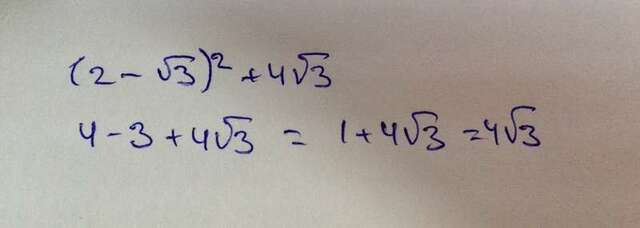 (2 - √3)² + 4√3
4 - 3 + 4√3 = 1 + 4√3 = 4√3